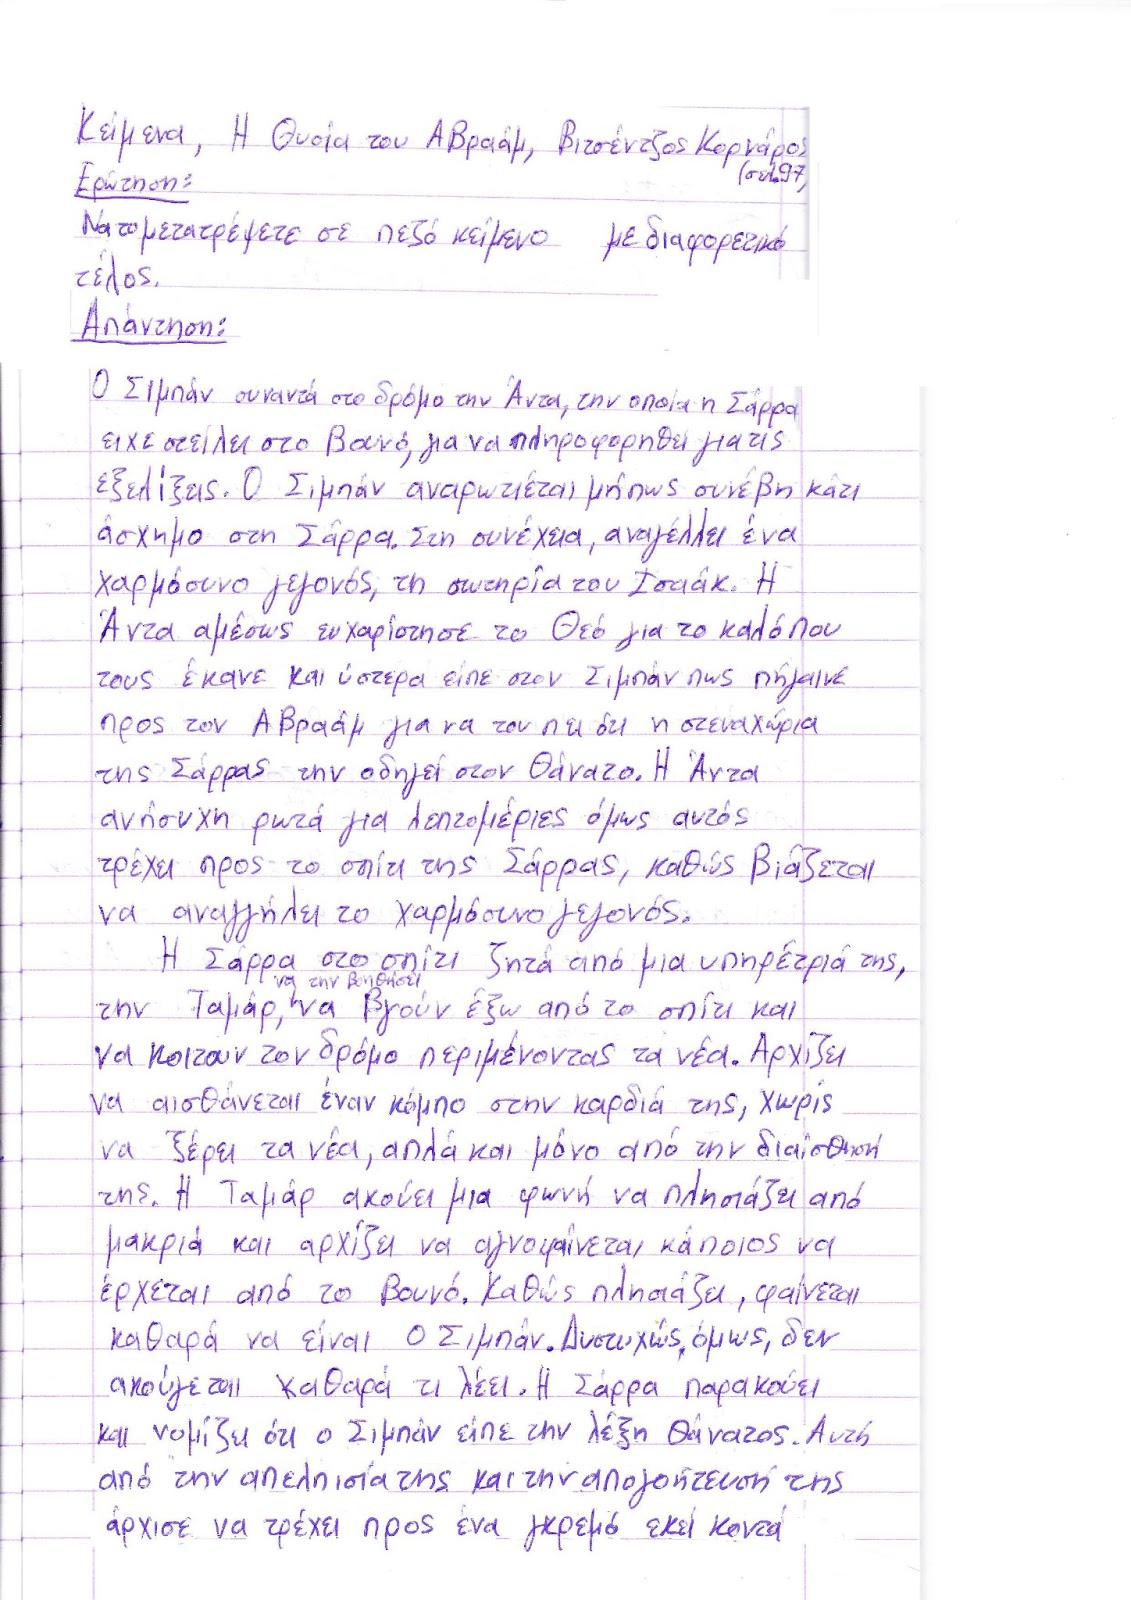 Κείμενα, Η Θυσία του Αβραάμ, Βιτσέντζος Κορνάρος
(σελ.97)
Ερώτηση:
Να το μετατρέψετε σε πεζό κείμενο με διαφορετικό
τέλος.
Απάντηση:
Ο Σιμπάν συναντά στο δρόμο την Άντα, την οποία η Σάρρα
ειχε στείλει στο βουνό, για να πληροφορηθεί για τις
εξελίξεις. Ο Σιμπάν αναρωτιέται μήπως συνέβη κάτι
άσχημο στη Σάρρα. Στη συνέχεια, αναγέλλει ένα
χαρμόσυνο γεγονός, τη σωτηρία του Ισαάκ. Η
Άντα αμέσως ευχαρίστησε το Θεό για το καλό που
τους έκανε και ύστερα είπε στον Σιμπάν πως πήγαινε
προς τον Αβραάμ για να του πει ότι η στεναχώρια
της Σάρρας την οδηγεί στον θάνατο. Η Άντα
ανήσυχη ρωτά για λεπτομέριες όμως αυτός
τρέχει προς το σπίτι της Σάρρας, καθώς βιάζεται
να αναγγήλει το χαρμόσυνο γεγονός.
Η Σάρρα στο σπίτι ζητά από μια υπηρέτριά της,
να την βοηθήσει
την Ταμάρ, να βγούν έξω από το σπίτι και
να κοιτουν τον δρόμο περιμένοντας τα νέα. Αρχίζει
να αισθάνεται έναν κόμπο στην καρδιά της, χωρίς
να ξέρει τα νέα, απλά και μόνο από την διαίσθησή
της. Η Ταμάρ ακούει μια φωνή να πλησιάζει από
μακριά και αρχίζει να αγνοφαίνεται κάποιος να
έρχεται από το βουνό. Καθώς πλησιάζει, φαίνεται
καθαρά να είναι ο Σιμπάν. Δυστυχώς, όμως, δεν
ακούγεται καθαρά τι λέει. Η Σάρρα παρακούει
και νομίζει ότι ο Σιμπάν είπε την λέξη θάνατος. Αυτή
από την απελπισία της και την απογοήτευσή της
άρχισε να τρέχει προς ένα γκρεμό εκεί κοντά